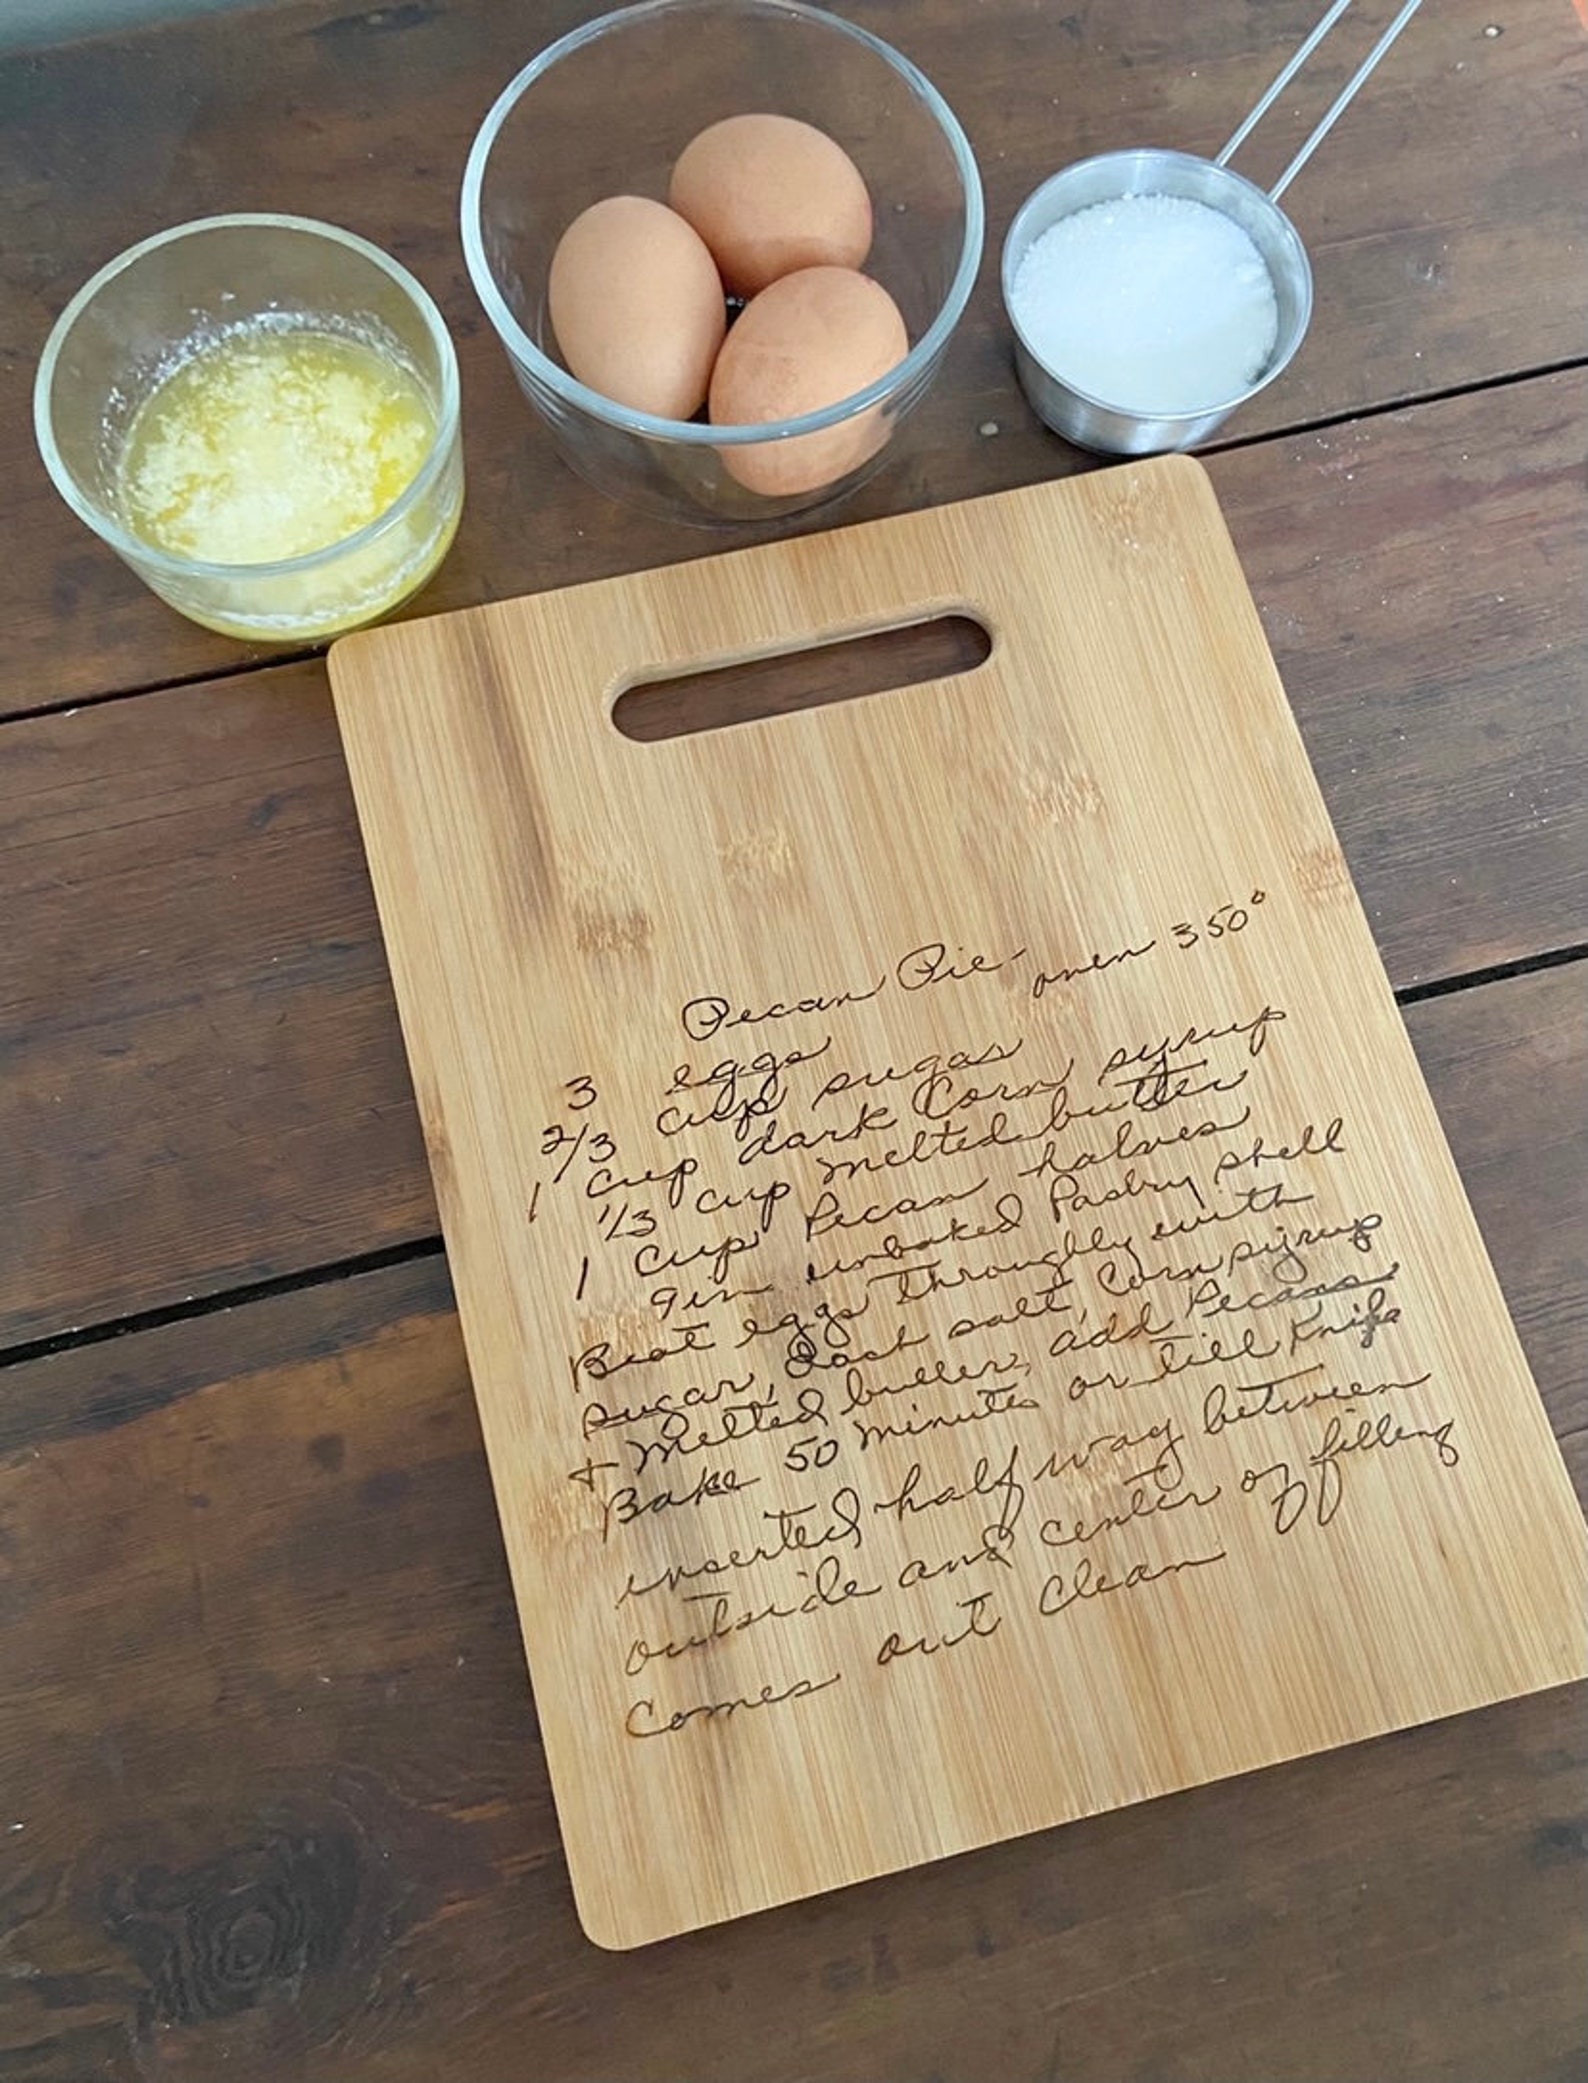 Pecan Pie
oven 350°
3 eggs
2/3 cup sugar
1 cup dark Corn syrup
1/3 cup melted butter
1 cup Pecan halves
9in unbaked Pastry shell
Beat eggs throughly with
sugar, Dash salt, Corn syrup
+ Melted butter, add Pecans
Bake 50 minutes or till Knife
inserted half way between
outside and center of filling
Comes out Clean